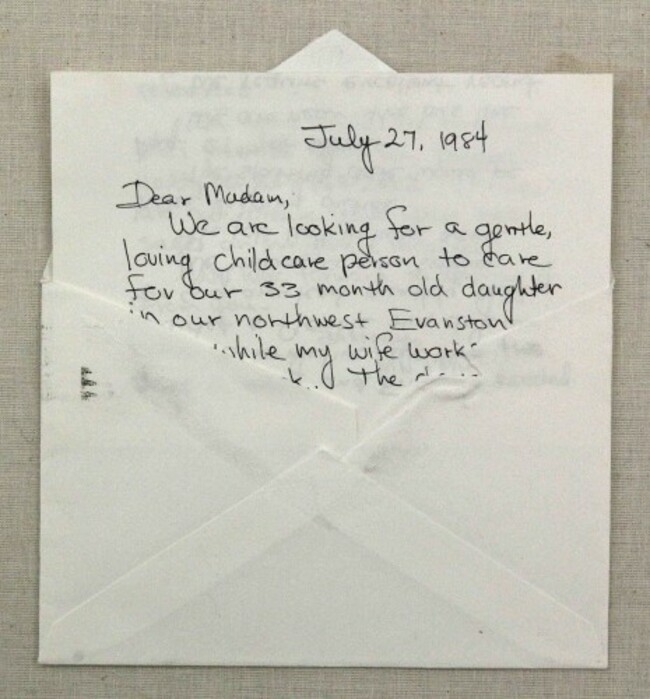 July 27, 1984
Dear Madam,
We are looking for a gentle,
loving childcare person to care
for our 33 month old daughter
in our northwest Evanston
while my wife works
The